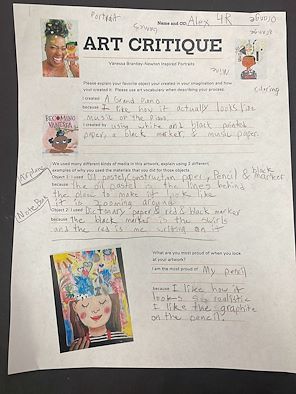 Portrait
Games
Name and CID: Alex 4R
Orange
ART CRITIQUE
Vanessa Brantley-Newton Inspired Portraits
Mine
coloring
Please explain your favorite object your created in your imagination and how
your created it. Please use art vocabulary when describing your process:
I created A Grand Piano
because I like how it actually looks like
music on the piano.
I created by using white and black painted
paper, a black marker, & music paper.
BECOMING
VANESSA
We used many different kinds of media in this artwork, explain using 2 different
examples of why you used the materials that you did for those objects.
Airplane
Object 1: I used Oil pastel, construction paper, Pencil & black marker
because the oil pastel is the lines behind
the plane to make it look like
it is zooming around
Object 2: I used Dictionary paper & red & black marker
because the black marker is the swirls
and the red is me writing on it
What are you most proud of when you look
at your artwork?
I am the most proud of My pencil
because I like how it
looks so realistic
I like the graphite
on the pencil.